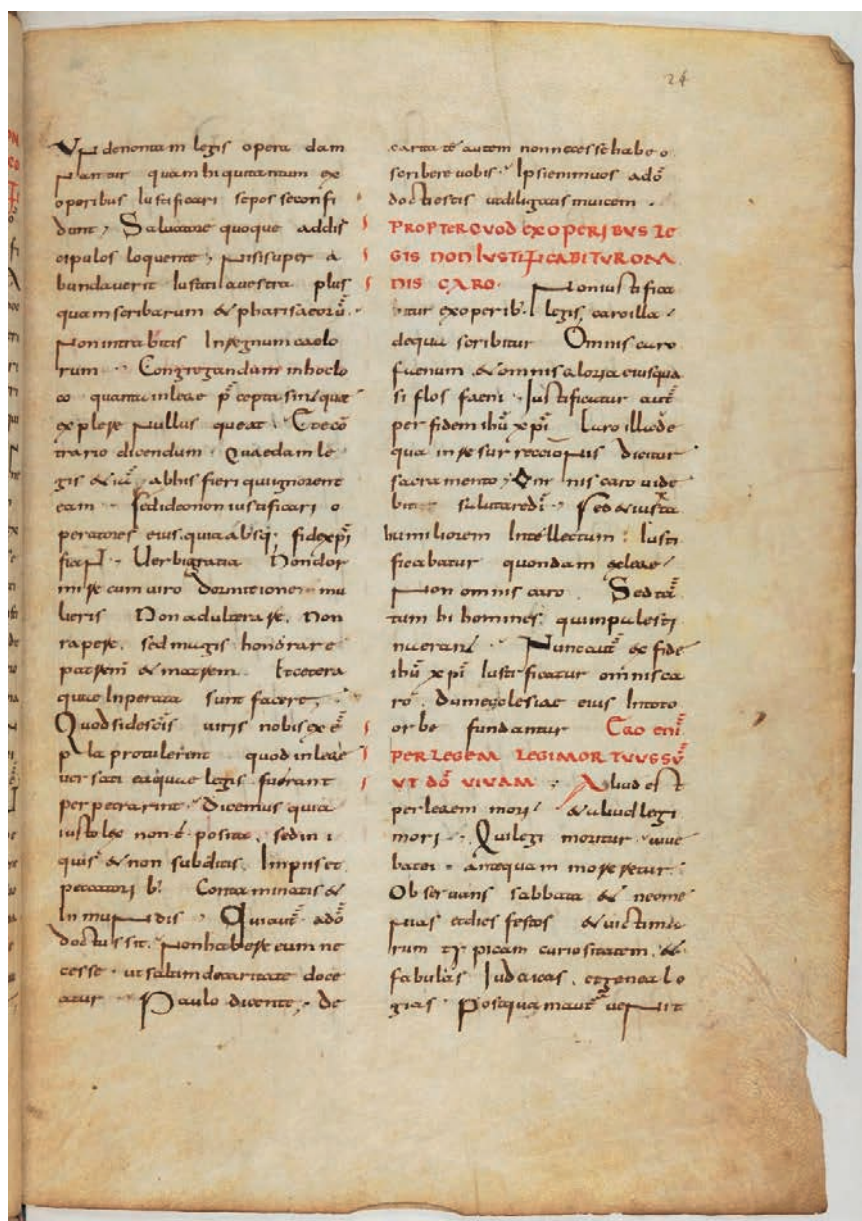 24
Unde non tam legis opera dam
nantur quam hi qui tantum ex
operibus iustificari se posse confi
dunt, Salvatore quoque addis
cipulos loquente, Nisi super a
bundaverit Iustitia vestra plus
quam scribarum & pharisaeorũ.
Non intrabitis In regnum caelo
rum. Congregandum in hoc lo
co quanta in lege p̃cepta sint que
explere nullus queat. Et e cõ
trario dicendum. Quaedam le
gis & iã ab his fieri qui ignorent
eam. Sed ideo non iustificari o
peratores eius, quia absq; fide xp̃i
fiant. Verbi gratia Non dor
mire cum viro dormitione mu
lieris Non adulterare. Non
rapere, sed magis honorare
patrem & matrem. Et cetera
quae Inperata sunt facere,
Quod si de sc̃is viris nobis exẽ
pla protulerint quod in lege
versati ea quae legis fuerant
perpetrarint. Dicemus quia
iusto lex non ẽ posita, sed in i
quis & non subditis. Impiis et
peccatorib; Contaminatis &
Inmundis. Qui autẽ a dõ
doctus sit. Non habere eum ne
cesse ut saltim de caritate doce
atur. Paulo dicente, de
caritate autem non necesse habeo
scribere vobis. Ipsi enim vos a dõ
docti estis ut diligatis invicem.
PROPTER QUOD EX OPERIBUS LE
GIS NON IUSTIFICABITUR OM
NIS CARO. Non iustifica
bitur ex operib; legis, caro illa
de qua scribitur Omnis caro
faenum & omnis gloria eius qua
si flos faeni. Justificatur autẽ
per fidem ihũ xp̃i Caro illa de
qua in resurrectionis dicitur
sacramento, Omnis caro vide
bit salutare dĩ. Sed & iuxta
humiliorem Intellectum: Iusti
ficabatur quondam ex lege
Non omnis caro. Sed tã
tum hi homines qui in palesti
na erant. Nunc autẽ ex fide
ihũ xp̃i Iustificatur omnis ca
ro. Dum ecclesiae eius In toto
orbe fundantur Ego enĩ
PER LEGEM LEGI MORTUUS SŨ
UT DÕ VIVAM. Aliud est
per legem mori & aliud legi
mori. Qui legi moritur vive
bat ei antequam moreretur.
Observans sabbata & neome
nias et dies festos & victima
rum typicam curiositatem, &
fabulas Iudaicas, et genealo
gias. Postquam autẽ venit